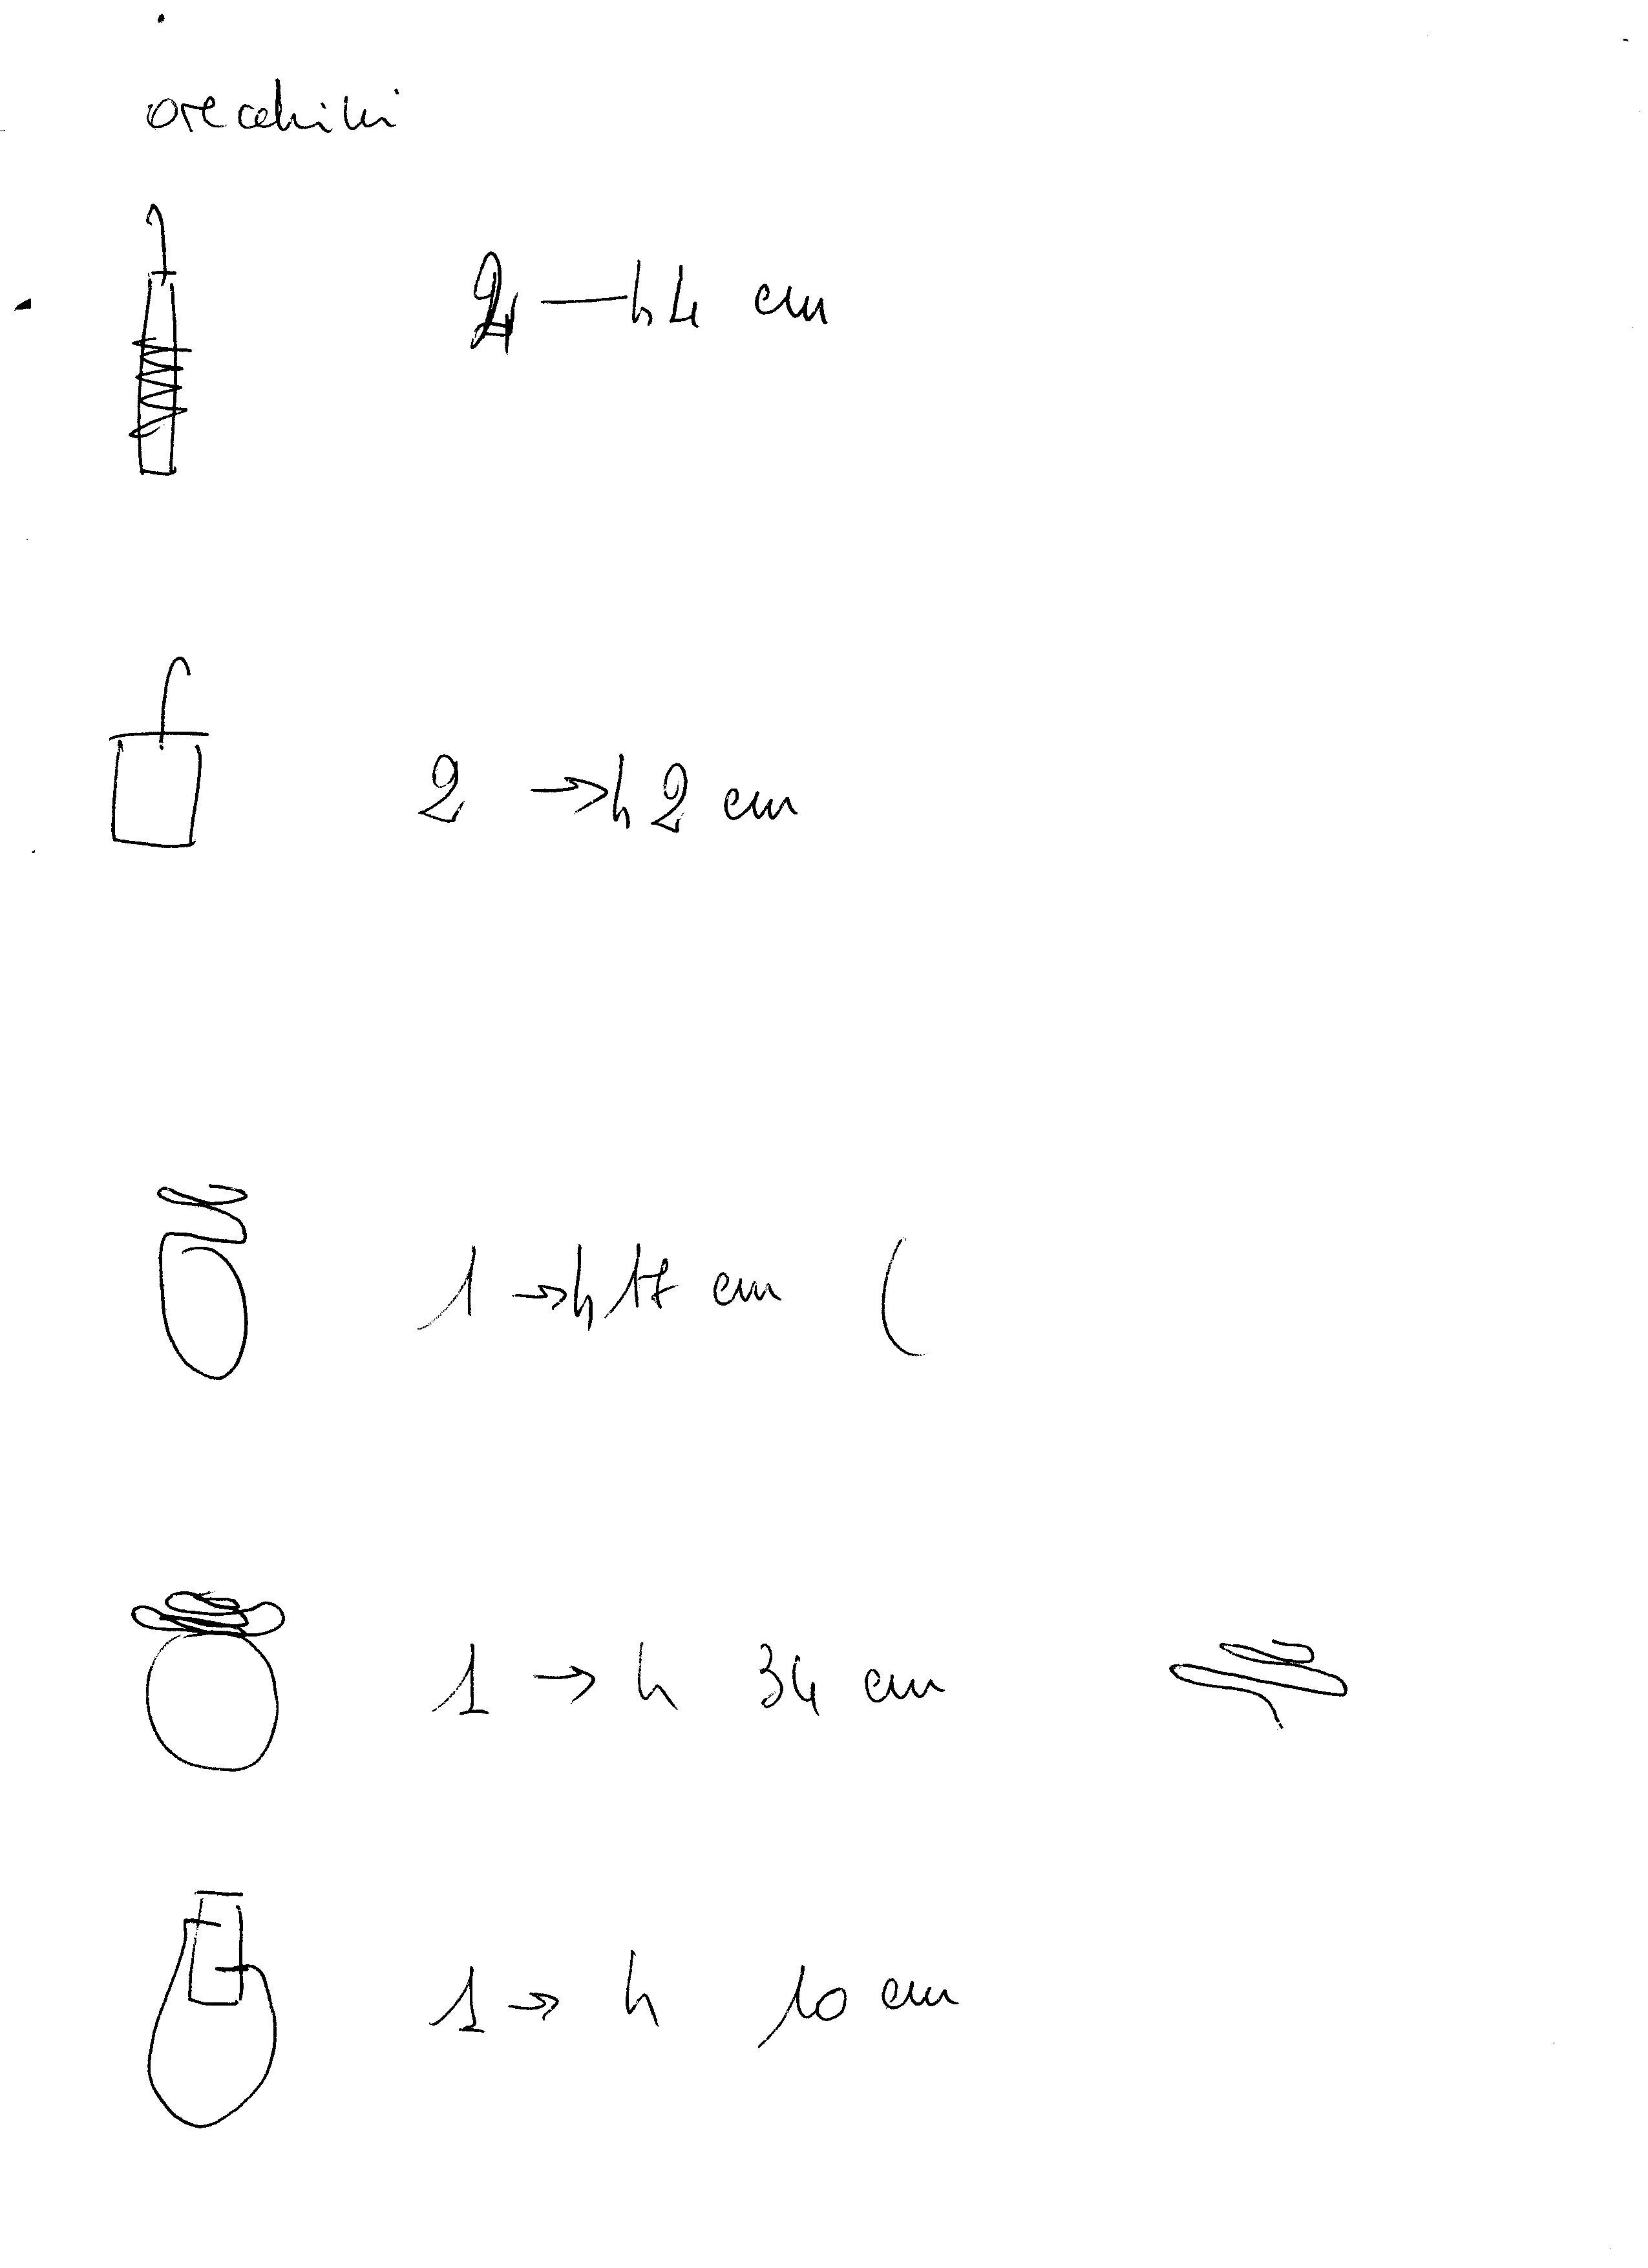 orecchini
2 — h 4 cm
2 → h 2 cm
1 → h 17 cm (
1 → h 34 cm
1 → h 10 cm